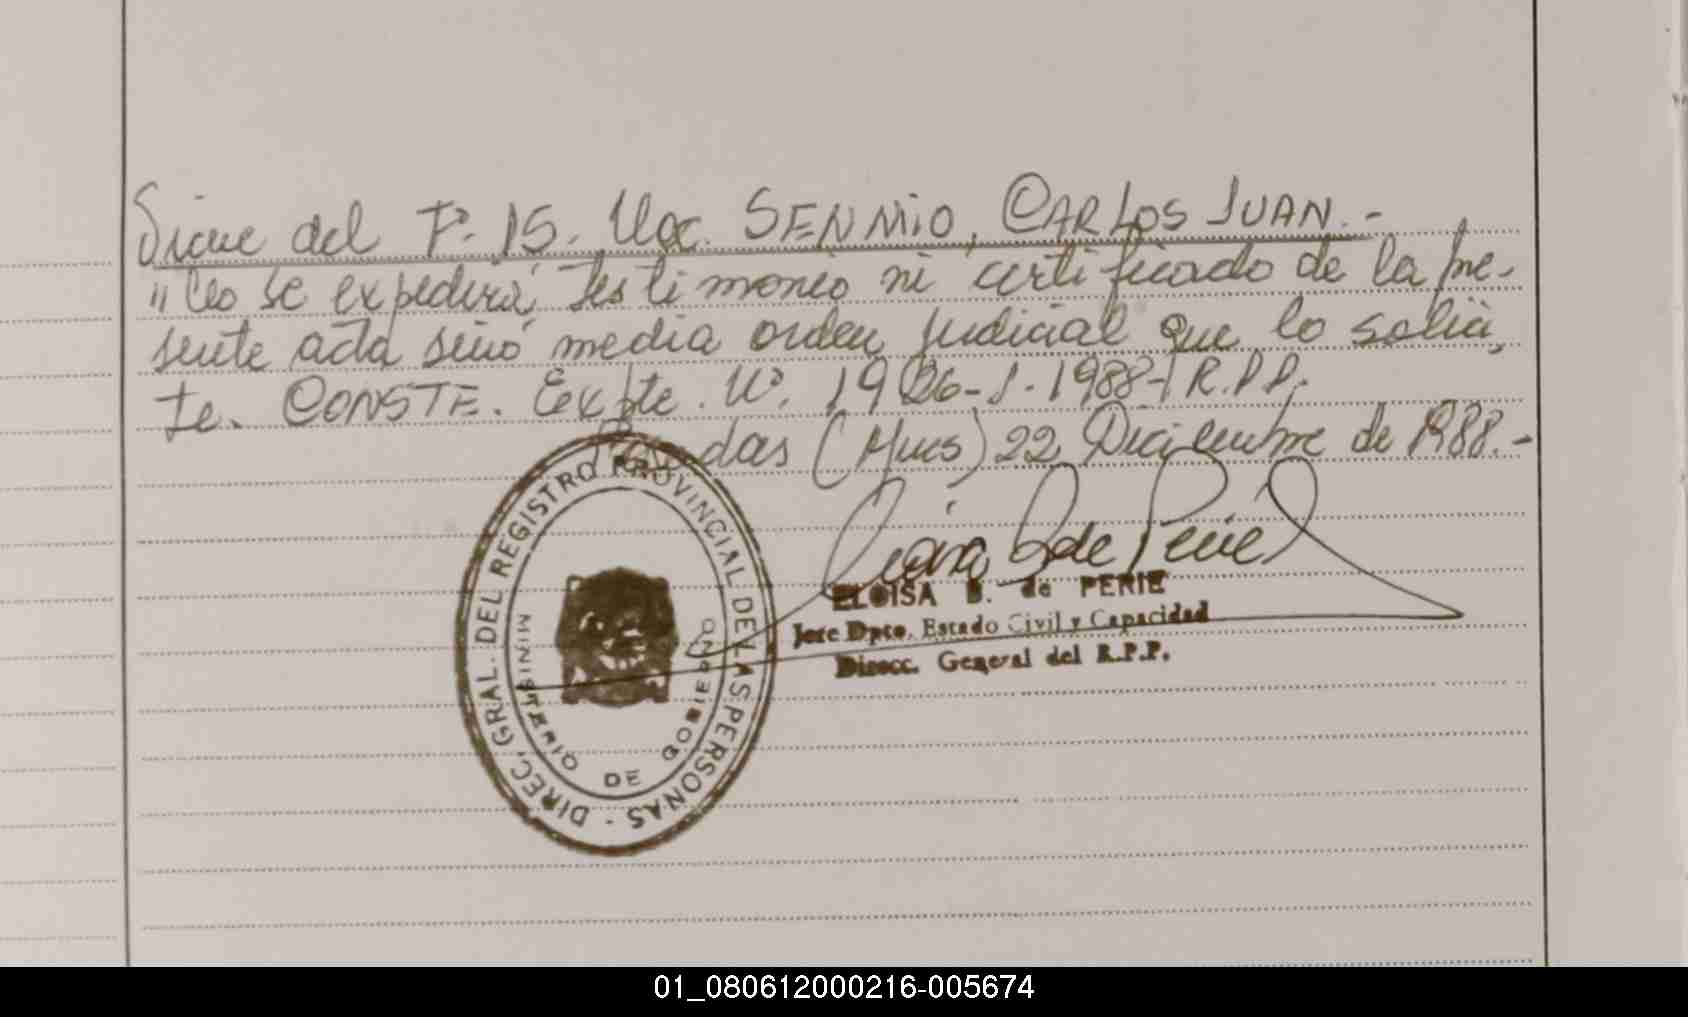 Sigue del Fº. 15. Nac. SENMIO, CARLOS JUAN.-
"No se expedirá, testimonio ni certificado de la pre-
sente acta sinó media orden judicial que lo solici,
te. CONSTE. Expte. Nº. 1926-J-1988-R.P.P.
Posadas (Mnes) 22 Diciembre de 1988.-
DIREC. GRAL. DEL REGISTRO PROVINCIAL DE LAS PERSONAS -
MINISTERIO DE GOBIERNO
ELOISA B. de PERIE
Jefe Dpto. Estado Civil y Capacidad
Direcc. General del R.P.P.
01_080612000216-005674